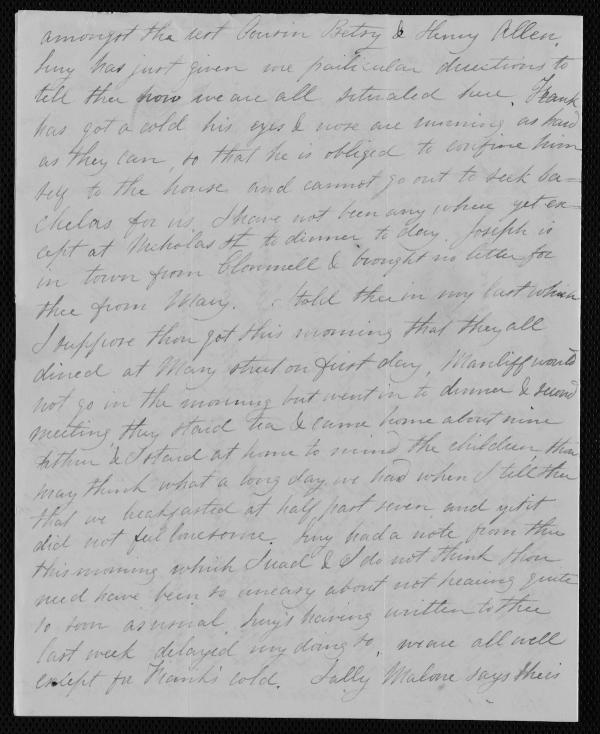 amongst the rest Cousin Betsy & Henry Allen.
Lucy has just given me particular directions to
tell thee how we are all situated here. Frank
has got a cold his eyes & nose are running as hard
as they can, so that he is obliged to confine him
self to the house and cannot go out to seek ba=
chelors for us. I have not been any where yet ex=
cept at Nicholas St to dinner to day. Joseph is
in town from Clonmell & brought no letter for
thee from Mary. I told thee in my last which
I suppose thou got this morning that they all
dined at Mary street on first day, Manliff would
not go in the morning but went in to dinner & second
meeting they staid tea & came home about nine
Father & I staid at home to mind the children, thou
may think what a long day we had when I tell thee
that we breakfasted at half past seven and yet it
did not feel lonesome. Lucy had a note from thee
this morning which I read & I do not think thou
need have been so uneasy about not hearing quite
so soon as usual. Lucy's having written to thee
last week delayed my doing so, we are all well
except for Frank's cold. Sally Malone says she is